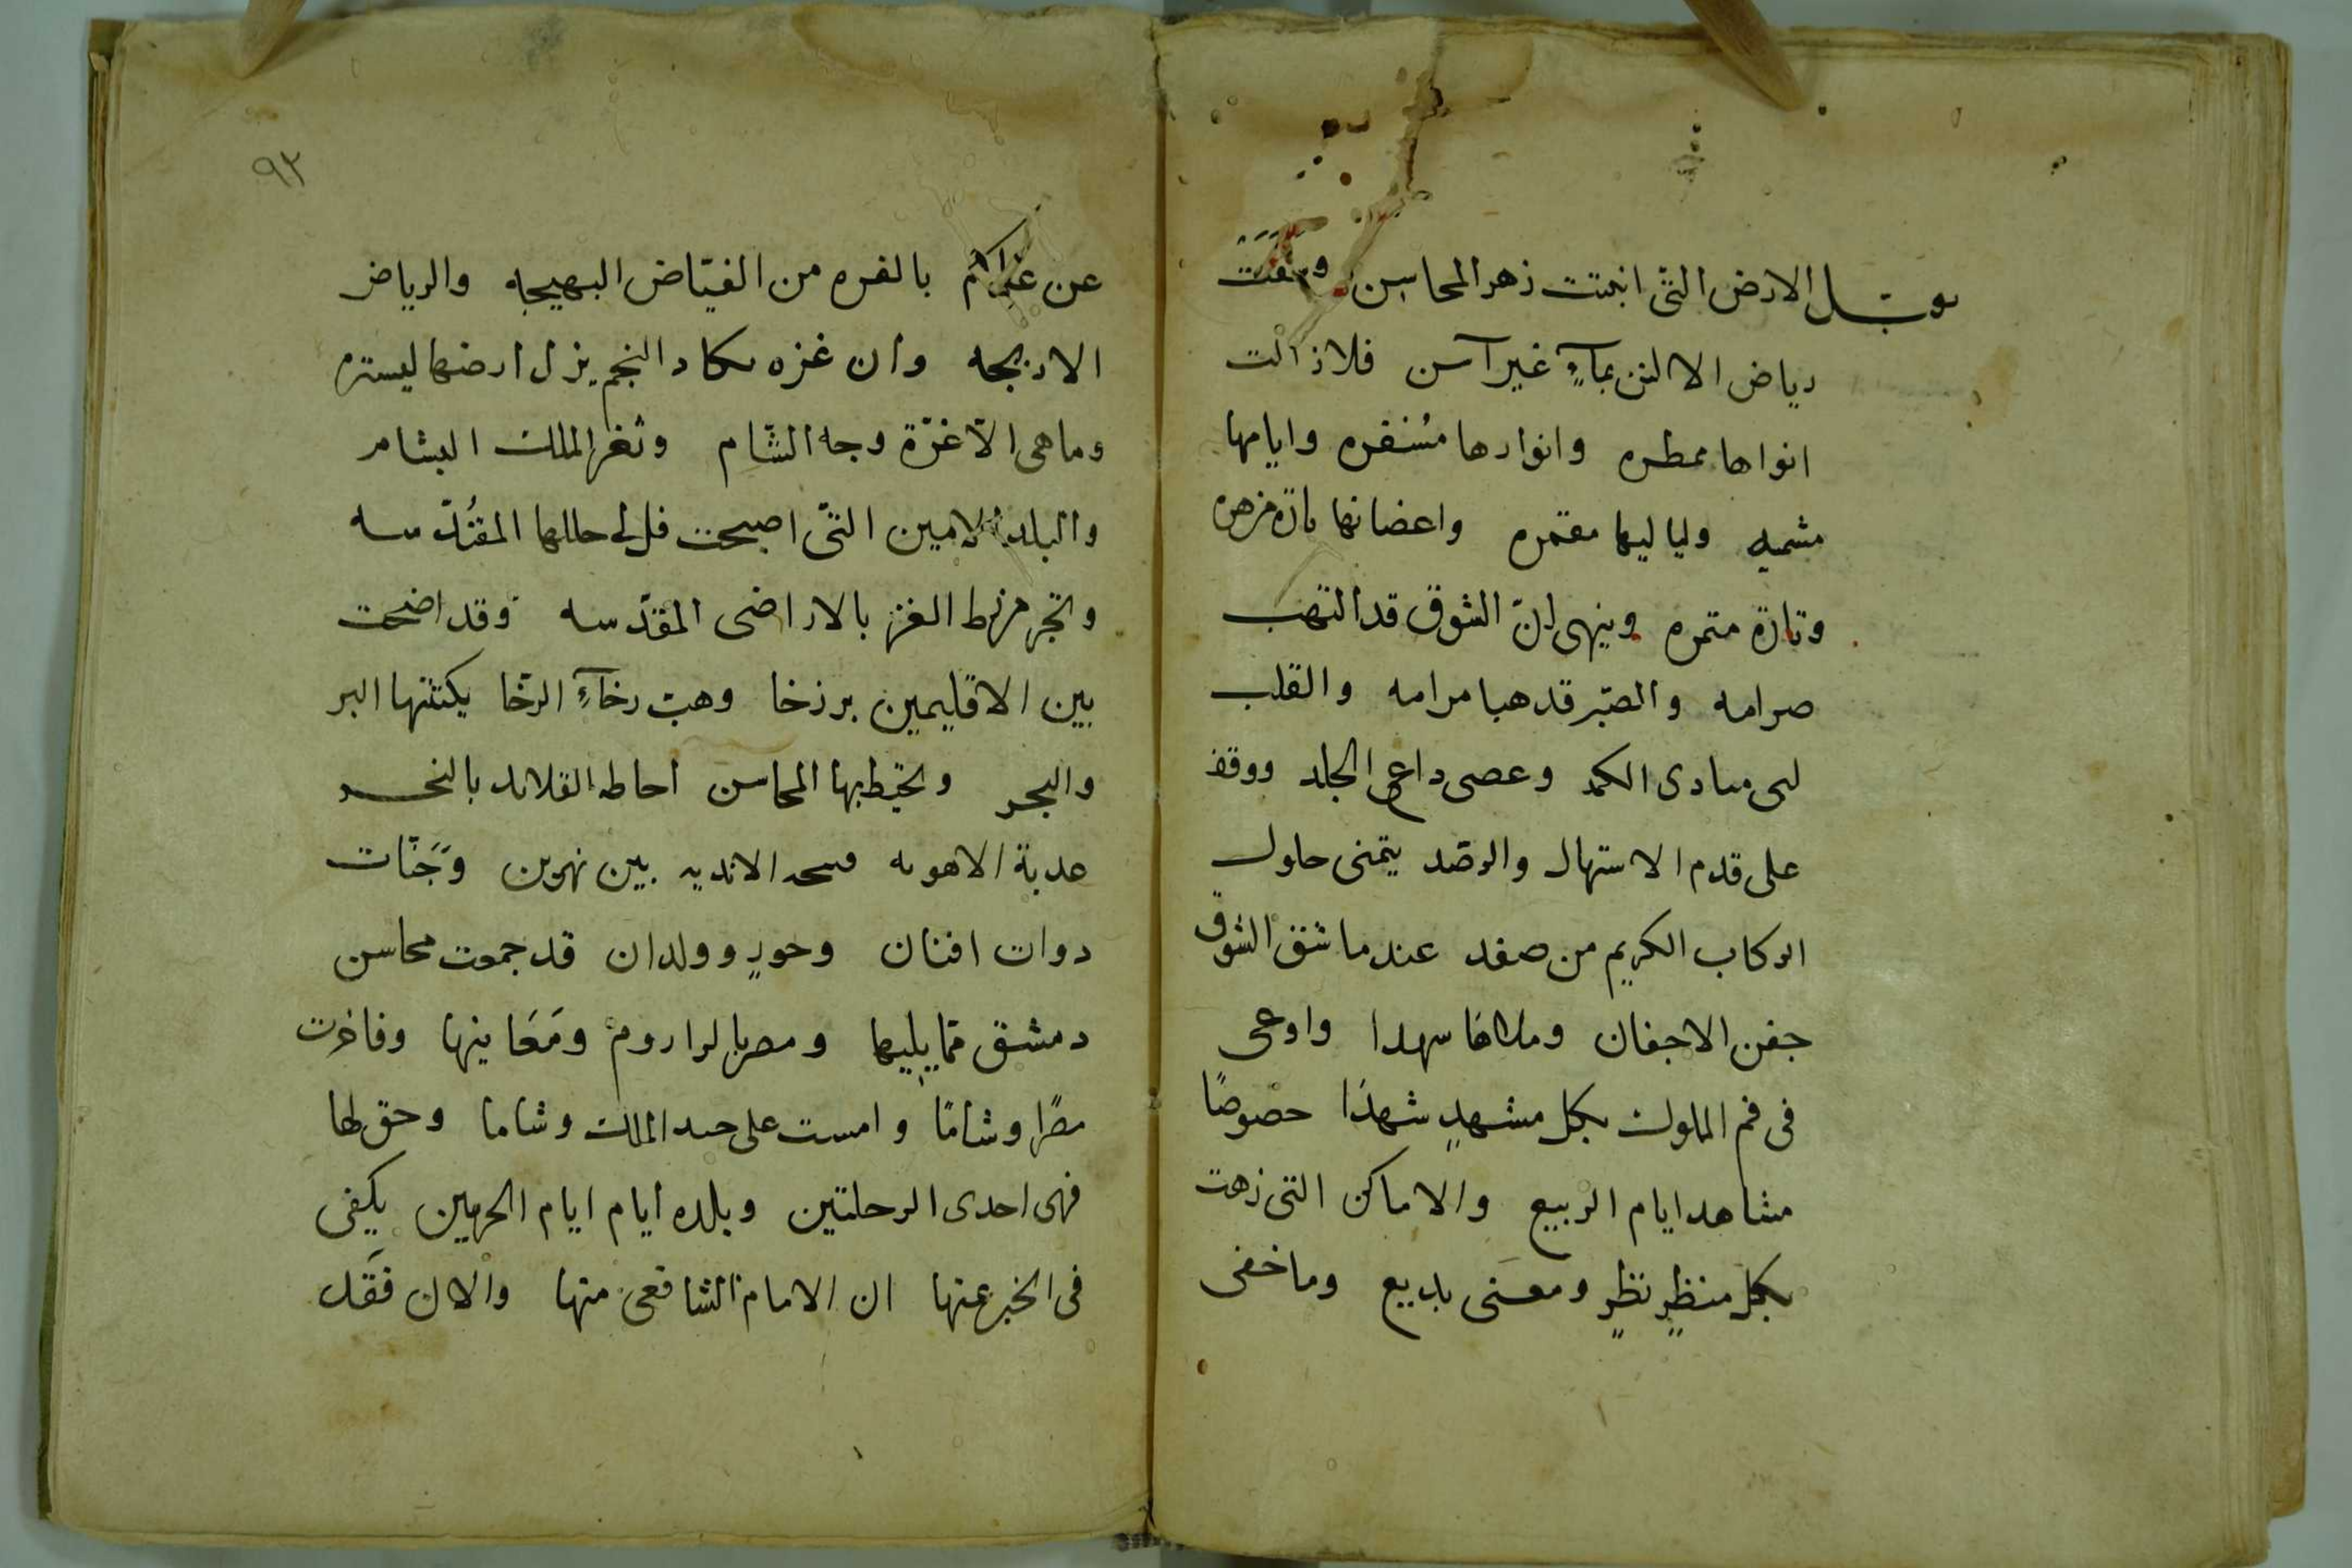 يقبل الارض التى انبتت زهر المحاسن وسقت
رياض الالسن بمآءٍ غير آسن فلازالت
انواها ممطره وانوارها مسفره وايامها
مشمسه ولياليها مقمره واغصانها تارة مزهره
وتارة مثمره وينهى انّ الشوق قد التهب
صرامه والصّبر قد هبا مرامه والقلب
لبى منادى الكمد وعصى داعى الجلد ووقف
على قدم الاستهال والرصّد يتمنى حلول
الركاب الكريم من صفد عندما شق الشوق
جفن الاجفان وملاها سهدا واوعى
فى فم الملوك بكل مشهدٍ شهدًا خصوصًا
مشاهد ايام الربيع والاماكن التى زهت
بكل منظرٍ نظرٍ ومعنى بديع وما خفى
٩٢
عن بالغره من الغيّاض البهيجه والرياض
الاريجه وان غزه يكاد النجم ينزل ارضها ليستره
وما هى الّا غرّة وجه الشّام وثغر الملك البشام
والبلد الامين التّى اصبحت فى حللها المقُدّسه
وتجر مرط الغز بالاراضى المقدّسه وقد اضحت
بين الاقليمين برزخا وهبّ رخآءِ الرخّا يكتنفها البر
والبحر وتحيط بها المحاسن احاطه القلائد بالنحر
عدبة الاهويه الانديه بين نهرين وَجَنّات
دوات افنان وحورٍ وولدان قد جمعت محاسن
دمشق ممّا يليها ومصر ومَعَانيها وفاخرت
مصرًا وشامًا وامست على خد الملك وشاما وحق لها
فهى احدى الرحلتين وبلده ايام ايام الحرمين يكفى
فى الخبر عنها ان الامام الشافعى منها والان فَقَد